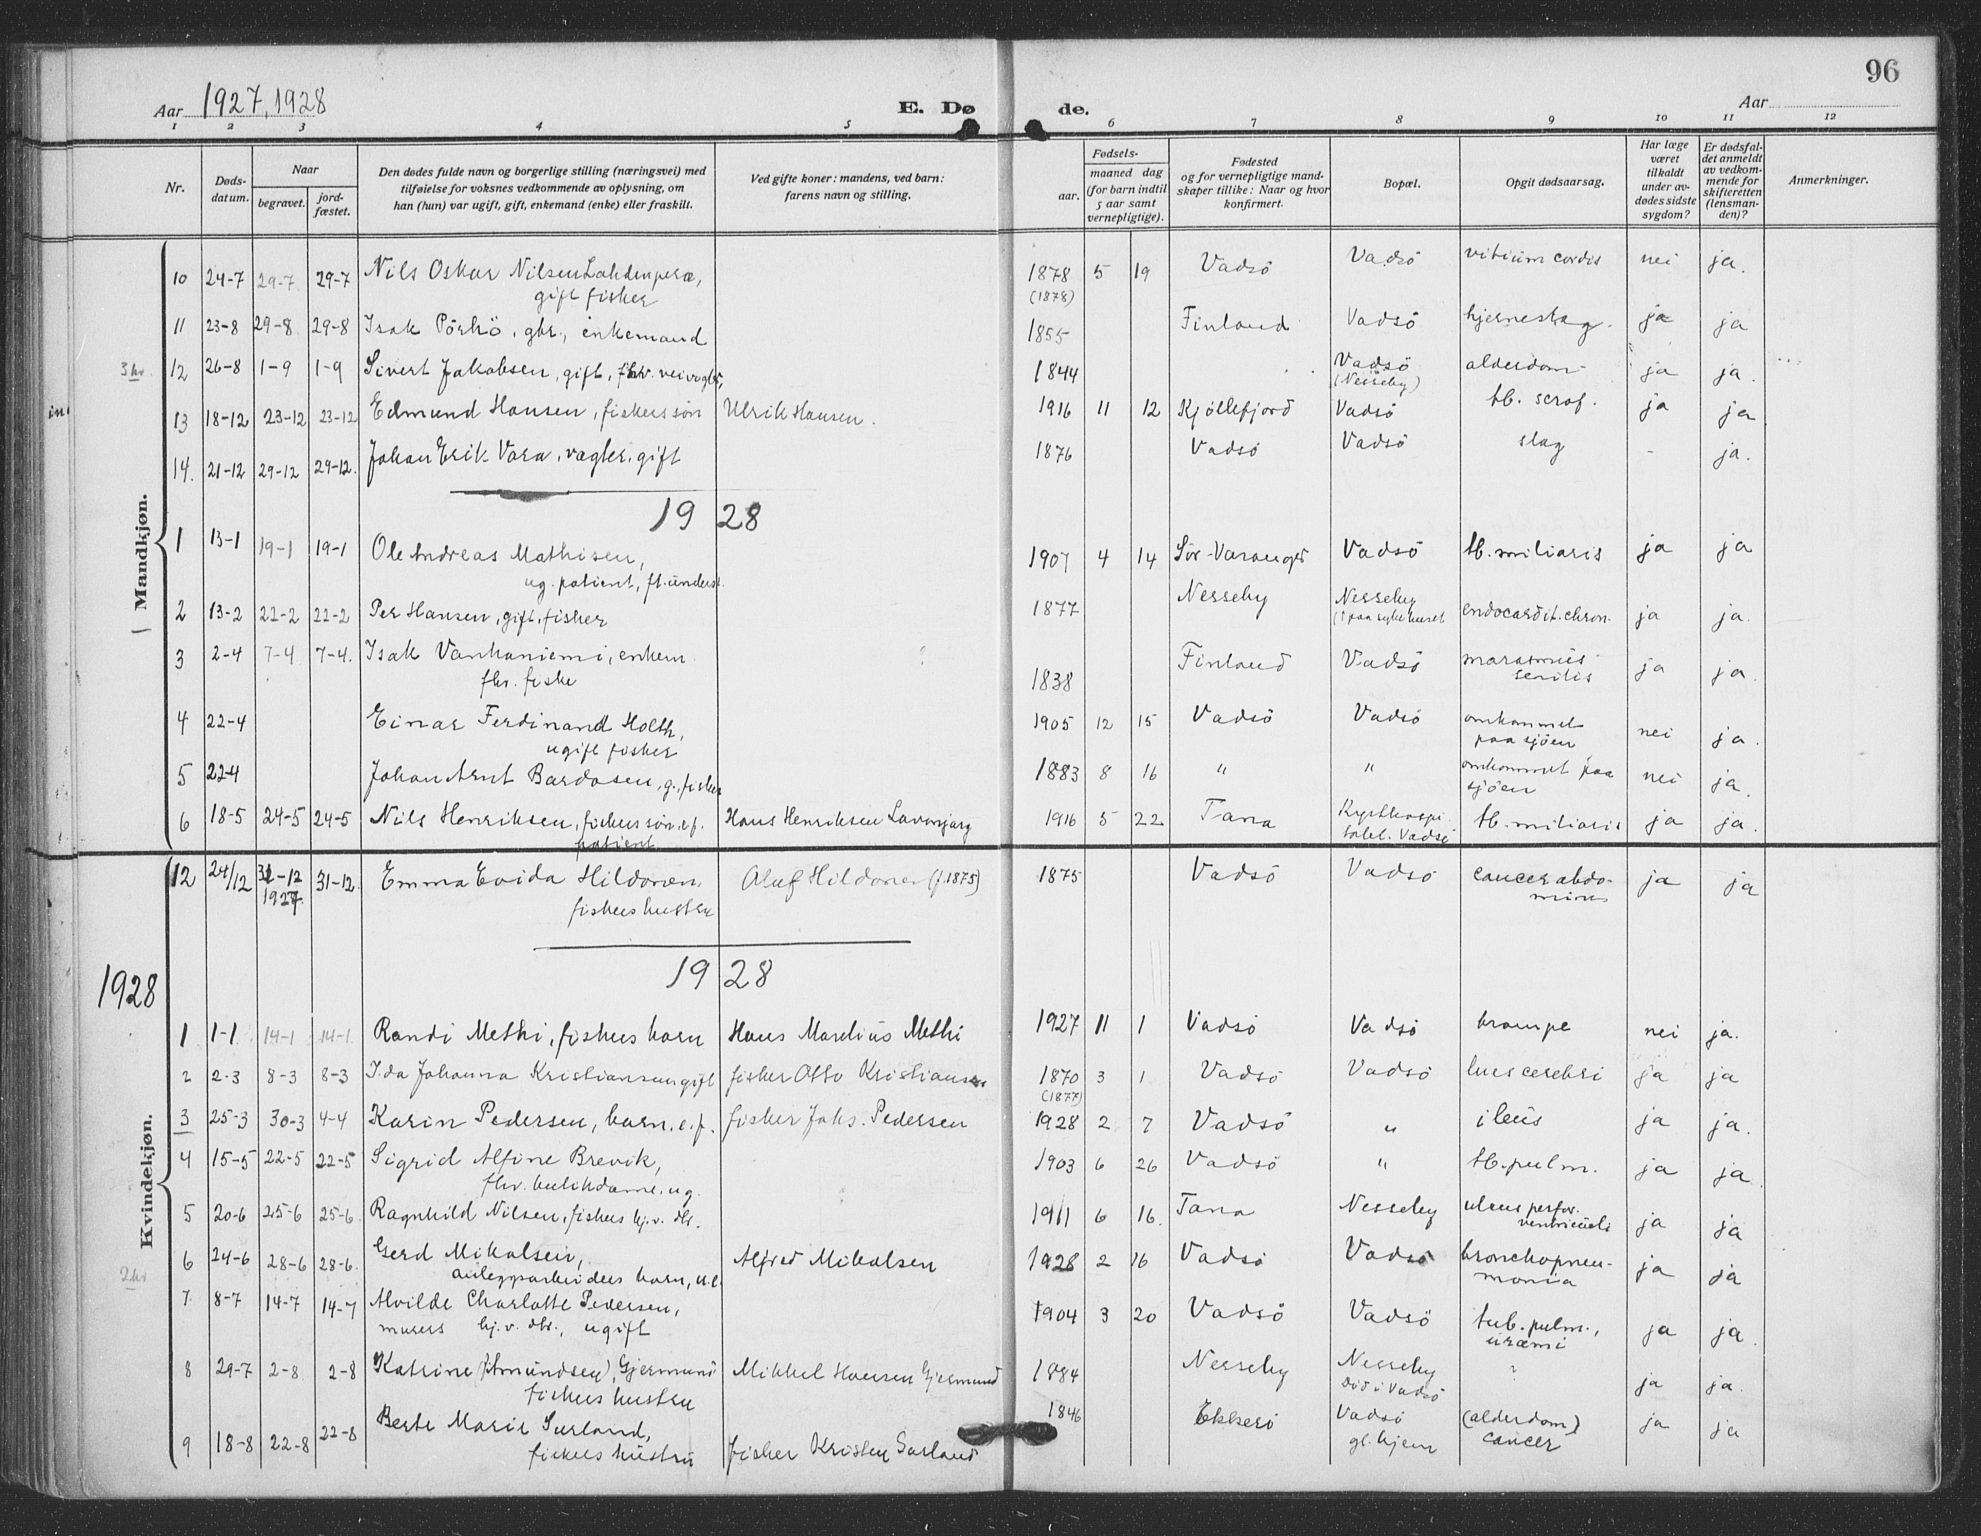 96
Aar 1927, 1928
E. Dø de.
Aar
1 2 3 4 5 6 7 8 9 10 11 12
Nr.
Døds-
datum.
Naar
begravet.
jord-
fæstet.
Den dødes fulde navn og borgerlige stilling (næringsvei) med
tilføielse for voksnes vedkommende av oplysning, om
han (hun) var ugift, gift, enkemand (enke) eller fraskilt.
Ved gifte koner: mandens, ved barn:
farens navn og stilling.
Fødsels-
aar.
maaned dag
(for barn indtil
5 aar samt
vernepligtige).
Fødested
og for vernepligtige mand-
skaper tillike: Naar og hvor
konfirmert.
Bopæl.
Opgit dødsaarsag.
Har læge
været
tilkaldt
under av-
dødes sidste
sygdom?
Er dødsfal-
det anmeldt
av vedkom-
mende for
skifteretten
(lensman-
den)?
Anmerkninger.
Mandkjøn.
10 24-7 29-7 29-7 Nils Oskar Nilsen Lahdenperæ, 1878 5 19 Vadsö Vadsö vitium cordis nei ja.
gift fisker (1878)
11 23-8 29-8 29-8 Isak Pörhö, gbr., enkemand 1855 Finland Vadsö hjerneslag. ja ja
3 hr. 12 26-8 1-9 1-9 Sivert Jakobsen, gift, fhv. veivogter, 1844 Vadsö alderdom ja ja.
(Nesseby)
13 18-12 23-12 23-12 Edmund Hansen, fiskers søn Ulrik Hansen. 1916 11 12 Kjöllefjord Vadsö tb. scrof. ja ja
14. 21-12 29-12 29-12. Johan Erik Vara, vagter, gift 1876 Vadsö Vadsö slag - ja.
1928
1 13-1 19-1 19-1 Ole Andreas Mathisen, 1907 4 14 Sör-Varanger Vadsö tb. miliaris ja ja
ug. patient, ft. underst.
2 13-2 22-2 22-2 Per Hansen, gift, fisker 1877 Nesseby Nesseby endocardit. chron. ja ja.
(† paa sykehuset
3 2-4 7-4 7-4. Isak Vankaniemi, enkem. ? 1838 Finland Vadsö marasmus ja ja.
fhv. fiske senilis
4 22-4 Einar Ferdinand Holth, 1905 12 15 Vadsö Vadsö omkommet nei ja.
ugift fisker paa sjöen
5 22-4 Johan Arnt Bardosen, g., fisker 1883 8 16 " " omkommet paa nei ja.
sjöen
6 18-5 24-5 24-5 Nils Henriksen, fiskers søn, e.f. Hans Henriksen Lavonjarg 1916 5 22 Tana Kysthospi tb. miliaris ja ja.
patient. talet. Vadsö
Kvindekjøn.
12 24/12 31-12 31-12. Emma Evida Hildonen, Oluf Hildonen (f. 1875) 1875 Vadsö Vadsö cancer abdo- ja ja
1927. fiskers hustru minis
1928
1928
1 1-1 14-1 14-1. Randi Methi, fiskers barn Hans Mardius Methi 1927 11 1 Vadsö Vadsö krampe nei ja.
2 2-3 8-3 8-3 Ida Johanna Kristiansen gift fisker Otto Kristiansen 1870 3 1 Vadsö Vadsö lues cerebri ja ja
(1877)
3 25-3 30-3 4-4 Karin Pedersen, barn, e.f. fisker Johs. Pedersen 1928 2 7 Vadsö " ileus ja ja.
4 15-5 22-5 22-5 Sigrid Alfine Brevik, 1903 6 26 Vadsö " tb. pulm. ja ja.
fhv. butikdame, ug.
5 20-6 25-6 25-6. Ragnhild Nilsen, fiskers hj.v. dtr. 1911 6 16. Tana Nesseby ulcus perfor. ja ja
ventriculi
2 hr 6 24-6 28-6 28-6. Gerd Mikalsen, Alfred Mikalsen 1928 2 16 Vadsö Vadsö bronchopneu- ja ja
anleggsarbeiders barn, u.e. monia
7. 8-7 14-7 14-7 Alvilde Charlotte Pedersen, 1904 3 20 Vadsö Vadsö tub. pulm., ja ja.
murers hj.v. dtr., ugift uræmi
8 29-7 2-8 2-8 Katrine (Amundsen), Gjermund Mikkel Hansen Gjermund 1884 Nesseby Nesseby ? ja ja.
fiskers hustru död i Vadsö
9 18-8 22-8 22-8 Berte Marie Surland, fisker Kristen Surland 1846 Ekkerö Vadsö (alderdom) ja ja
fiskers hustru gl. hjem cancer